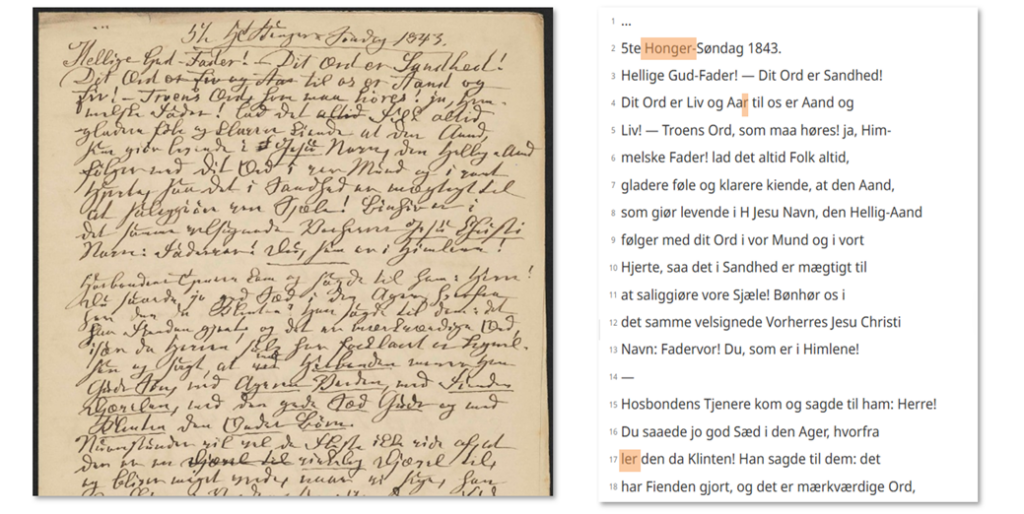 Søndag 1843.
Hellige Gud-Fader! — Dit Ord er Sandhed!
Dit Ord er Liv og til os er Aand og
Liv! — Troens Ord, som maa høres! ja, Him-
melske Fader! lad det altid Folk altid
gladere føle og klarere kiende at den Aand,
som giør levende i Jesu Navn, den Hellig-Aand
følger med dit Ord i vor Mund og i vort
Hjerte, saa det i Sandhed er mægtigt til
at saliggiøre vore Sjæle! Bønhør os i
det samme velsignede Vorherres Jesu Christi
Navn: Fadervor! Du, som er i Himlene!
Hosbondens Tjenere kom og sagde til ham: Herre!
Du saaede jo god Sæd i den Ager, hvorfra
den da Klinten? Han sagde til dem: det
har Fienden gjort, og det er mærkværdige Ord,
især da Herren selv har forklaret
og sagt, at med Hosbonden
Guds Søn, med Ageren Verden, med Fienden
Djævelen, med den gode Sæd Guds og med
Klinten den Ondes Børn.
1 ...
2 5te Honger-Søndag 1843.
3 Hellige Gud-Fader! — Dit Ord er Sandhed!
4 Dit Ord er Liv og Aar til os er Aand og
5 Liv! — Troens Ord, som maa høres! ja, Him-
6 melske Fader! lad det altid Folk altid,
7 gladere føle og klarere kiende, at den Aand,
8 som giør levende i H Jesu Navn, den Hellig-Aand
9 følger med dit Ord i vor Mund og i vort
10 Hjerte, saa det i Sandhed er mægtigt til
11 at saliggiøre vore Sjæle! Bønhør os i
12 det samme velsignede Vorherres Jesu Christi
13 Navn: Fadervor! Du, som er i Himlene!
14 —
15 Hosbondens Tjenere kom og sagde til ham: Herre!
16 Du saaede jo god Sæd i den Ager, hvorfra
17 ler den da Klinten! Han sagde til dem: det
18 har Fienden gjort, og det er mærkværdige Ord,